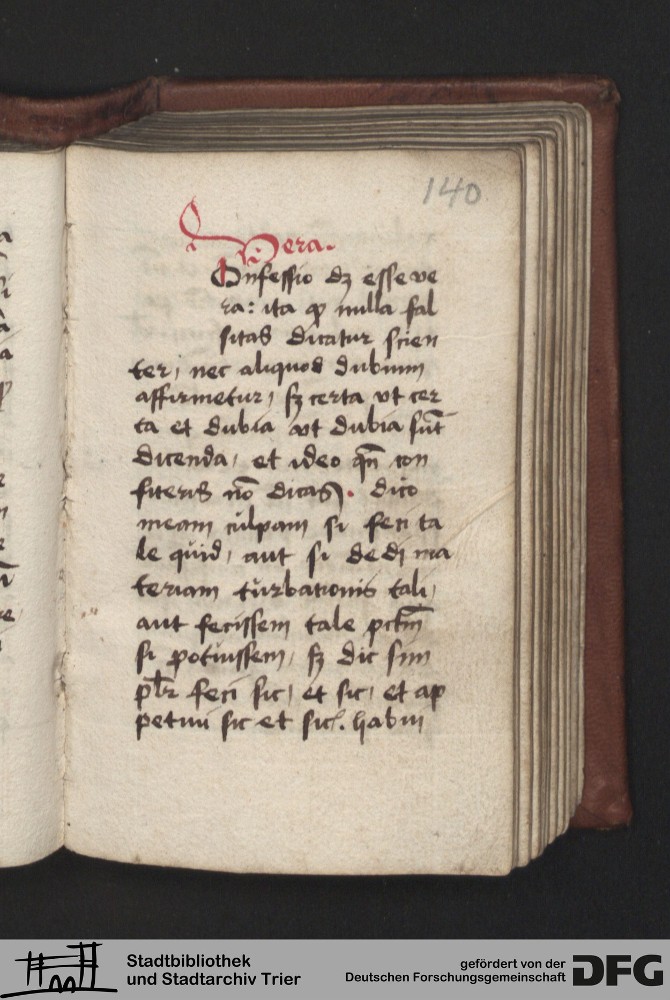 140
Vera.
Confessio dꝫ esse ve
ra: ita ꝙ nulla fal
sitas dicatur scien
ter, nec aliquod dubium
affirmetur, sꝫ certa vt cer
ta et dubia vt dubia su̅t
dicenda, et ideo qn̅ con
fiteris no̅ dicas. dico
meam culpam si feci ta
le quid, aut si dedi ma
teriam turbationis tali,
aut fecissem tale pctm̅
si potuissem, sꝫ dic
feci sic, et sic, et ap
petiui sic et sic. habui
Stadtbibliothek
und Stadtarchiv Trier
gefördert von der
Deutschen Forschungsgemeinschaft
DFG